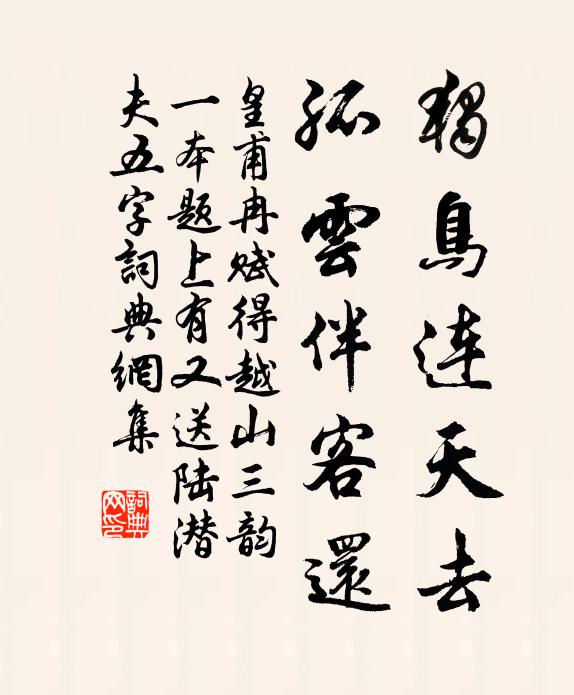 独鳥連天去
孤雲伴客還
皇甫冉賦得越山三韵
一本題上有又送陆潜
夫五字詞典網集
詞典
网印